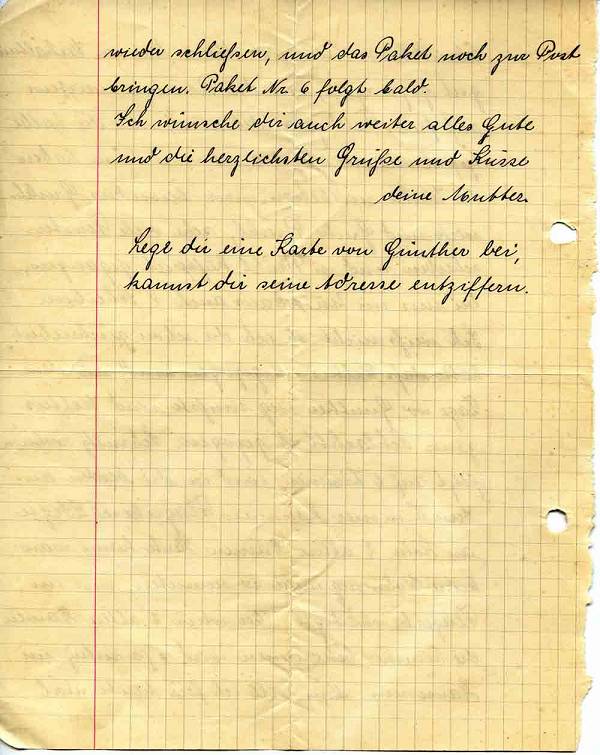 wieder schließen, und das Paket noch zur Post
bringen. Paket Nr. 6 folgt bald.
Ich wünsche dir auch weiter alles Gute
und die herzlichsten Grüße und Küsse
deine Mutter.
Lege dir eine Karte von Günther bei,
kannst dir seine Adresse entziffern.